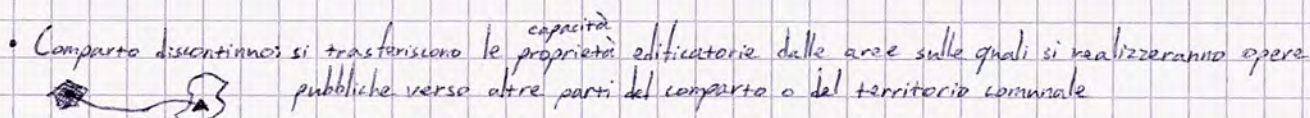 • Comparto discontinuo: si trasferiscono le proprietà edificatorie dalle aree sulle quali si realizzeranno opere
capacità
pubbliche verso altre parti del comparto o del territorio comunale